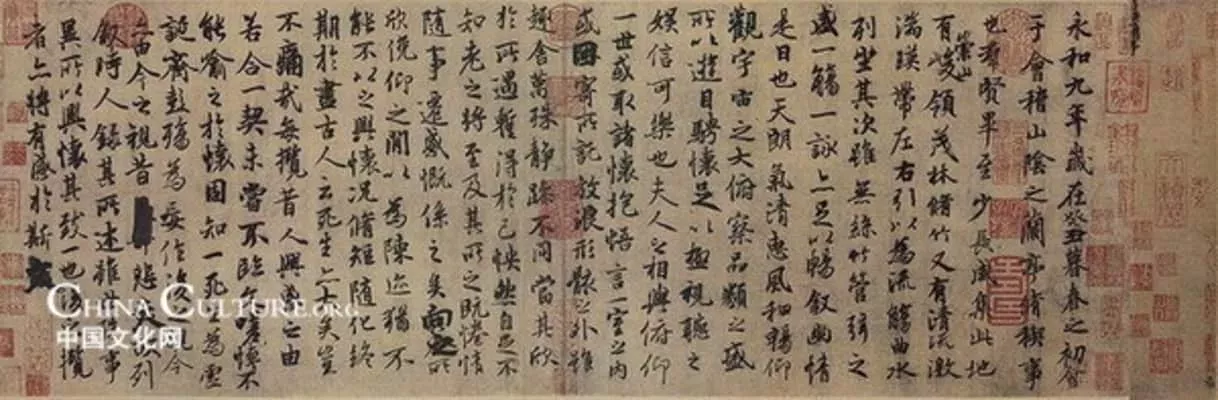 永和九年歲在癸丑暮春之初會
于會稽山陰之蘭亭脩稧事
也羣賢畢至少長咸集此地
有崇山峻領茂林脩竹又有清流激
湍暎帶左右引以為流觴曲水
列坐其次雖無絲竹管弦之
盛一觴一詠亦足以暢敘幽情
是日也天朗氣清惠風和暢仰
觀宇宙之大俯察品類之盛
所以遊目騁懷足以極視聽之
娛信可樂也夫人之相與俯仰
一世或取諸懷抱悟言一室之內
或因寄所託放浪形骸之外雖
趣舍萬殊靜躁不同當其欣
於所遇暫得於己怏然自足不
知老之將至及其所之既惓情
隨事遷感慨係之矣向之所
欣俛仰之閒以為陳迹猶不
能不以之興懷況脩短隨化終
期於盡古人云死生亦大矣豈
不痛哉每攬昔人興感之由
若合一契未嘗不臨文嗟悼不
能喻之於懷固知一死生為虛
誕齊彭殤為妄作後之視今
亦由今之視昔悲夫故列
敘時人錄其所述雖世殊事
異所以興懷其致一也後之攬
者亦將有感於斯文
CHINA CULTURE.ORG
中国文化网